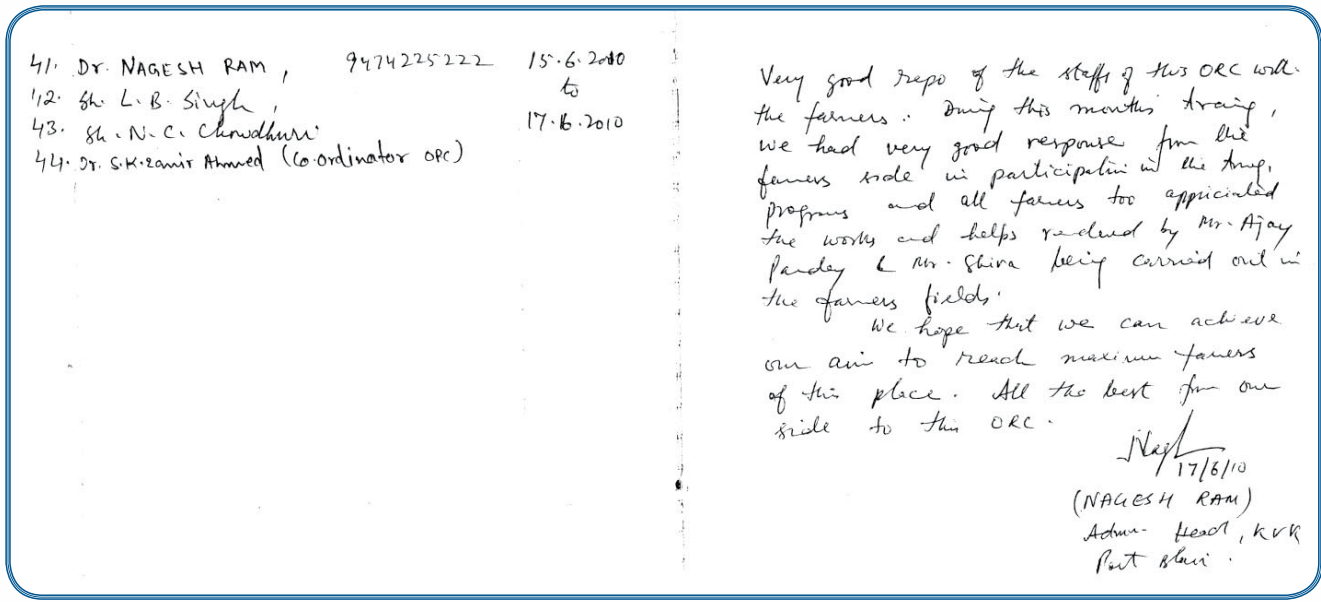 41. Dr. NAGESH RAM, 9474225222 15.6.2010
42. Sh. L. B. Singh, to
43. Sh. N. C. Chowdhuri 17.6.2010
44. Dr. S.K. Zamir Ahmed (Co-ordinator OPC)
Very good repo of the staffs of this ORC with
the farmers. During this months traing,
we had very good response from the
farmers side in participatin in the trng.
programs and all farmers too appriciated
the works and helps rendered by Mr. Ajay
Pandey & Mr. Shiva being carried out in
the farmers fields.
We hope that we can achieve
our aim to reach maximum farmers
of this place. All the best from our
side to this ORC.
17/6/10
(NAGESH RAM)
Admn. Head, KVK
Port Blair.